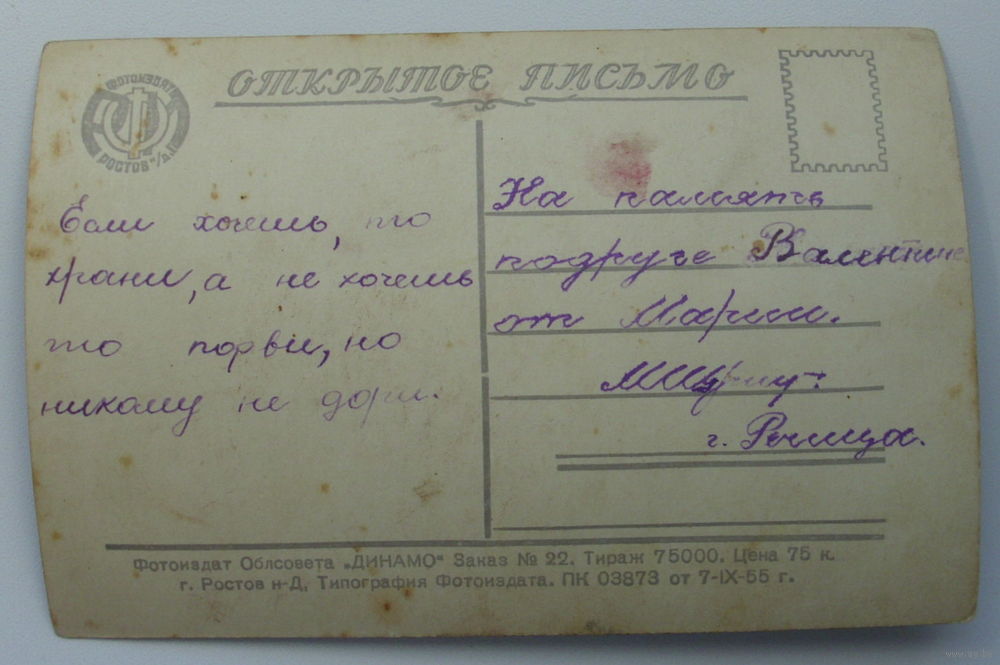 ОТКРЫТОЕ ПИСЬМО
ФОТОИЗДАТ
РОСТОВ н/Д.
Если хочешь, то
храни, а не хочешь
то порви, но
никому не дари.
На память
подруге Валентине
от Марии.
г. Речица.
Фотоиздат Облсовета „ДИНАМО" Заказ № 22. Тираж 75000. Цена 75 к.
г. Ростов н-Д, Типография Фотоиздата. ПК 03873 от 7-IX-55 г.